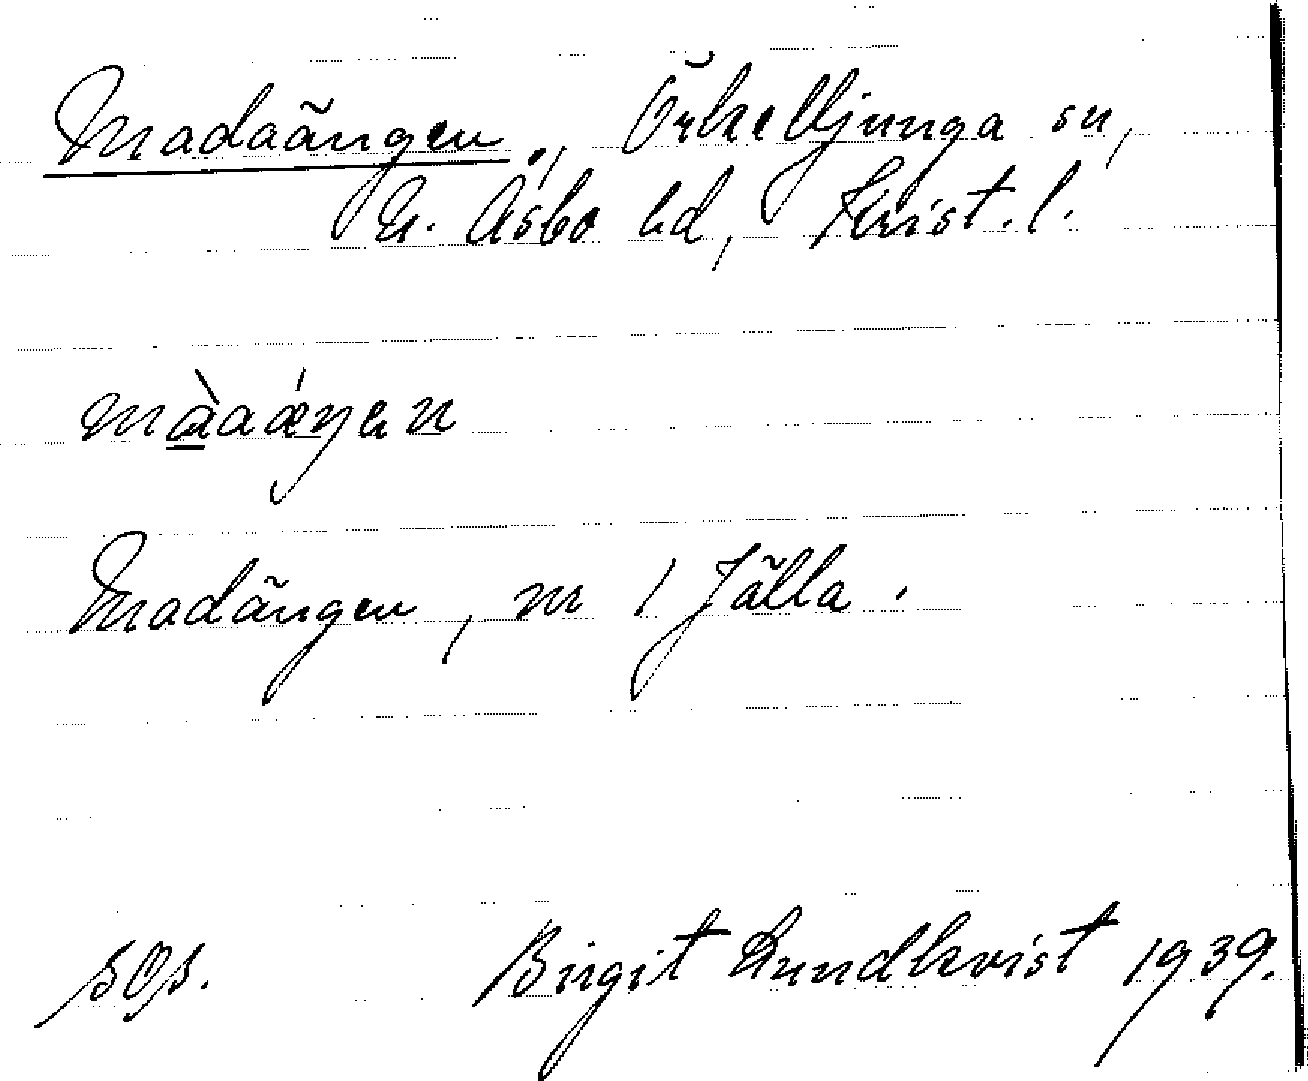 Madaängen, Örkelljunga sn,
N. Åsbo hd, Krist. l.
màaáŋen
Madängen, nr 1 Jälla.
sOs. Birgit Lundkvist 1939.